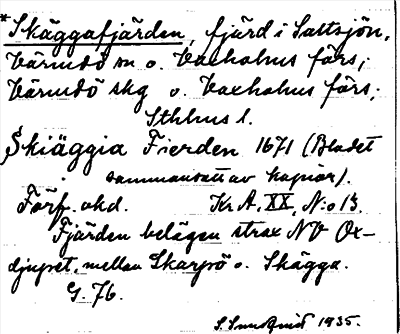 *Skäggafjärden, fjärd i Saltsjön,
Värmdö sn o. Vaxholms förs;
Värmdö skg o. Vaxholms förs;
Sthlms l.
Skiäggia Fierden 1671 (Bladet
sammansatt av kapior).
Förf. okd. Kr A, XX, N:o 13.
Fjärden belägen strax NV Ox-
djupet, mellan Skarpö o. Skägga.
G. 76.
S. Sundquist 1935.